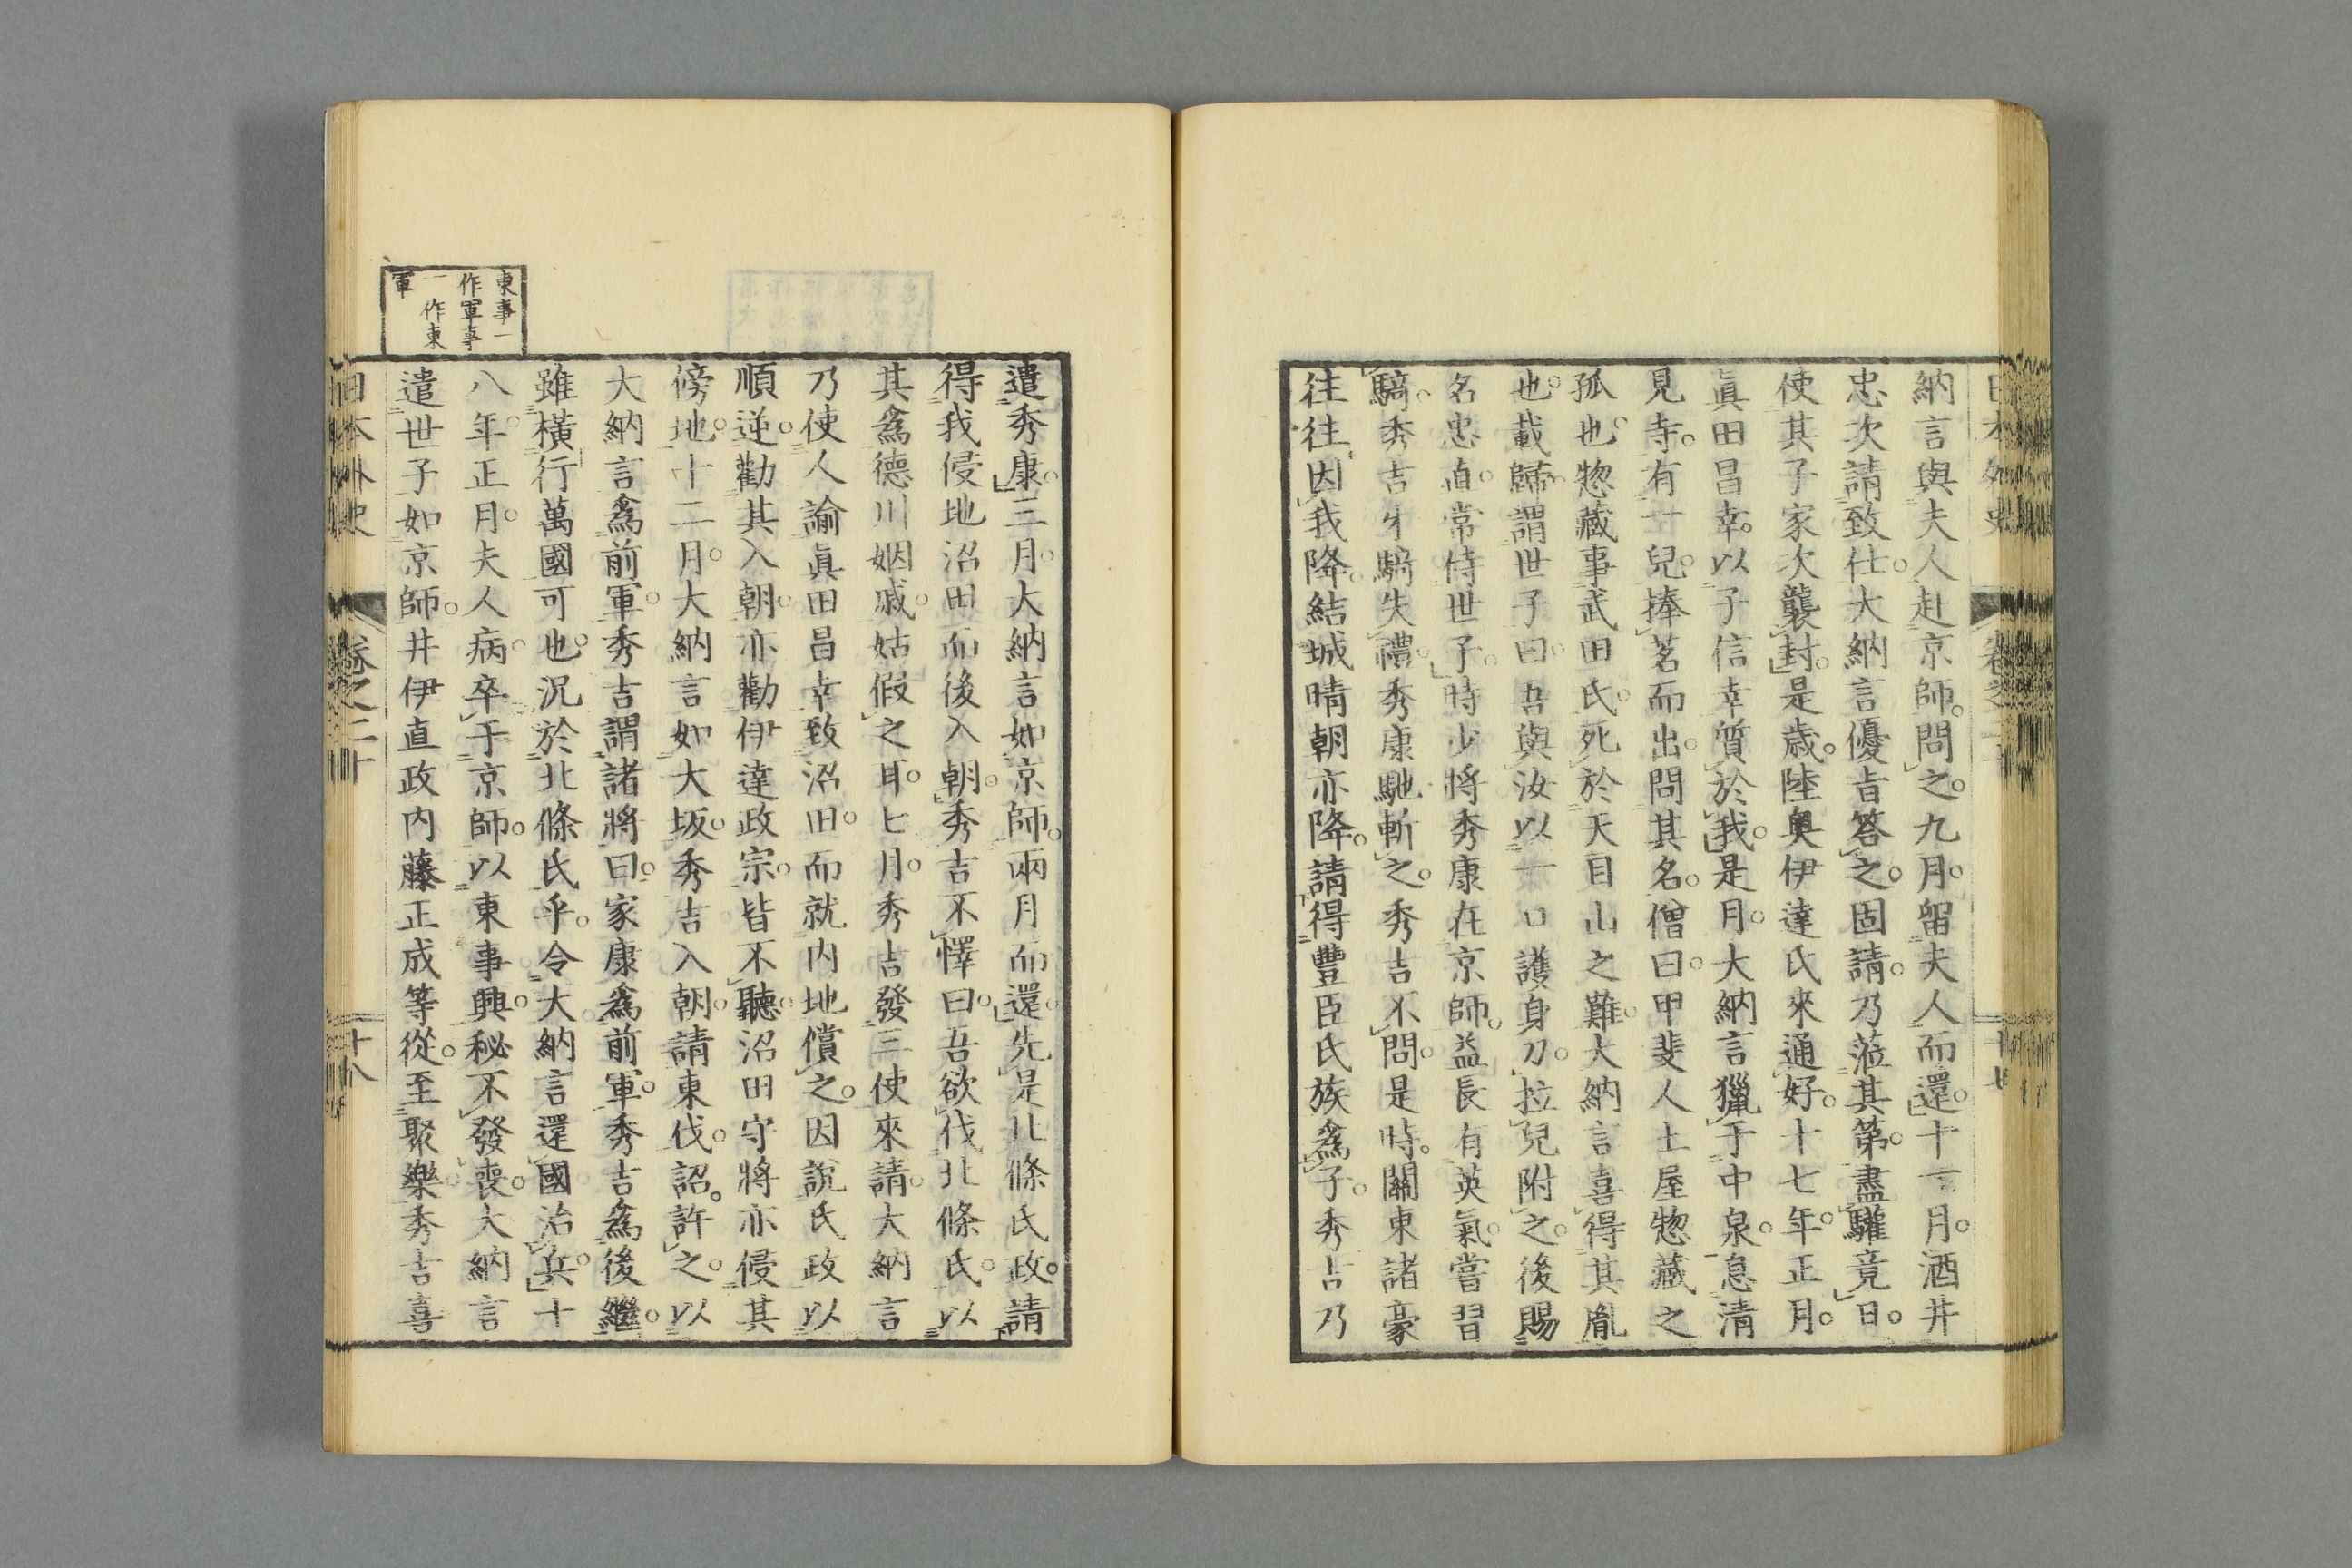 納言與夫人赴京師。問之。九月。留夫人而還。十一月。酒井
忠次請致仕。大納言優旨答之。固請。乃蒞其第。盡驩竟日。
使其子家次襲封。是歳。陸奥伊達氏來通好。十七年。正月。
眞田昌幸。以子信幸質於我。是月。大納言獵于中泉。息清
見寺。有一兒。捧茗而出。問其名。僧曰。甲斐人土屋惣藏之
孤也。惣藏事武田氏。死於天目山之難。大納言喜得其胤
也。載歸。謂世子曰。吾與汝以一口護身刀。拉兒附之。後賜
名忠直。常侍世子。時少將秀康在京師。益長有英氣。嘗習
騎。秀吉牛騎失禮。秀康馳斬之。秀吉不問。是時。關東諸豪
往往因我降。結城晴朝亦降。請得豐臣氏族爲子。秀吉乃
遣秀康。三月。大納言如京師。兩月而還。先是北條氏政。請
得我侵地沼田而後入朝。秀吉不懌曰。吾欲伐北條氏。以
其爲德川姻戚。姑假之耳。七月。秀吉發三使來請。大納言
乃使人諭眞田昌幸致沼田。而就内地償之。因説氏政以
順逆。勸其入朝。亦勸伊達政宗。皆不聽。沼田守將亦侵其
傍地。十二月。大納言如大坂。秀吉入朝。請東伐。詔許之。以
大納言爲前軍。秀吉謂諸將曰。家康爲前軍。秀吉爲後繼。
雖橫行萬國可也。況於北條氏乎。令大納言還國治兵。十
八年。正月。夫人病。卒于京師。以東事興。秘不發喪。大納言
遣世子如京師。井伊直政内藤正成等從。至聚樂。秀吉喜
東事一
作軍事
一作東
軍
日本外史 卷之二十 十八